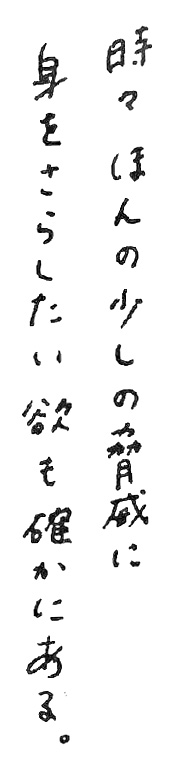 時々 ほんの少しの脅威に
身をさらしたい欲も確かにある。